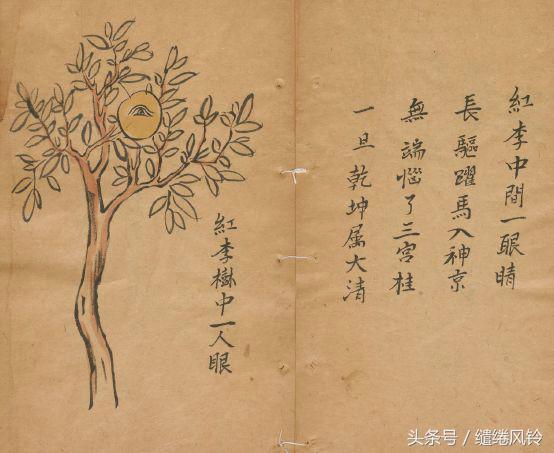 紅李中間一眼睛
長驅躍馬入神京
無端惱了三宮桂
一旦乾坤属大清
紅李樹中一人眼
头条号 / 缱绻风铃